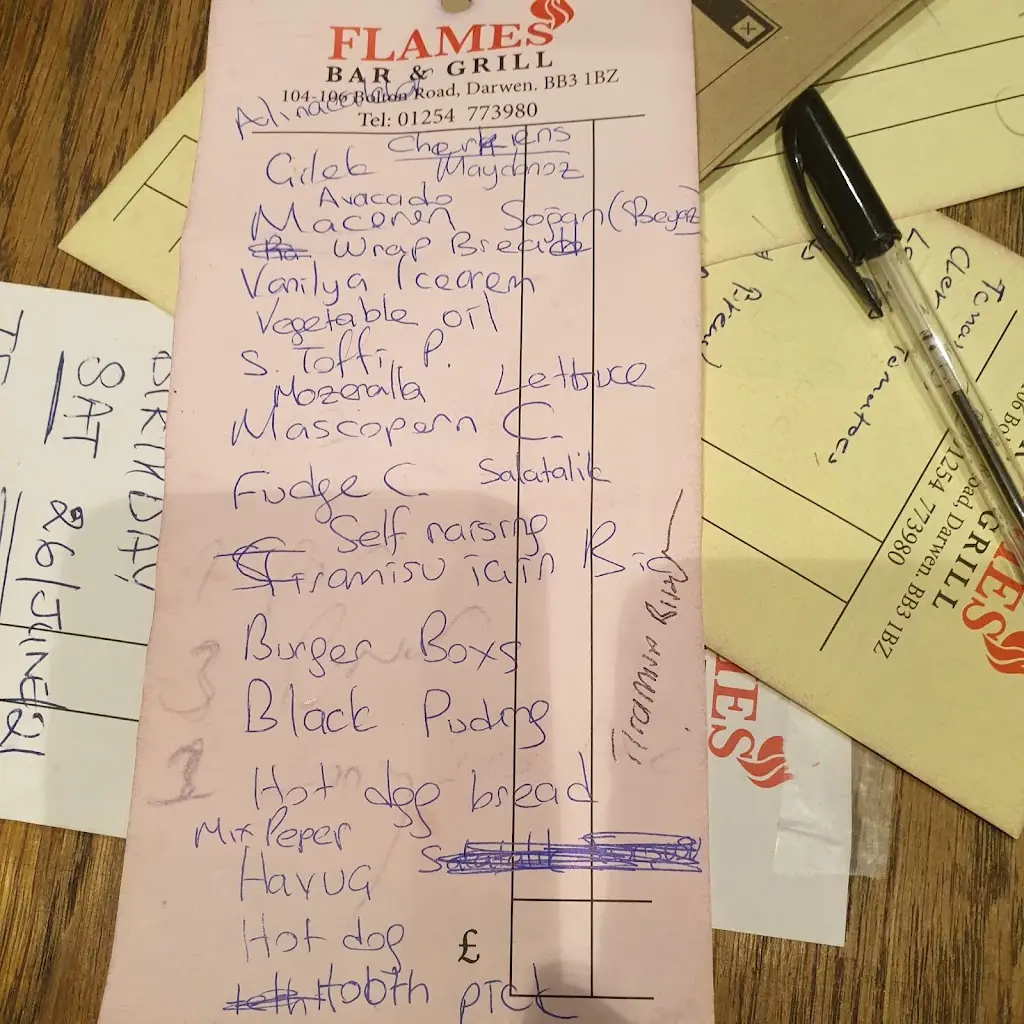 FLAMES
BAR & GRILL
104-106 Bolton Road, Darwen. BB3 1BZ
Tel: 01254 773980
Alinacaklar
Cilek Maydonoz
Avacado
Maceren Soğan (Beyaz
Wrap Bread
Vanilya Icecrem
Vegetable oil
S. Toffi, P.
Mozeralla Lettuce
Mascopern C.
Fudge C. Salatalik
Self raising
Tiramisu icin Bis
Burger Boxs
Black Puding
Hot dog bread
Mix Peper
Havuq
Hot dog £
tooth pick
3
1
BIRTHDAY
SAT 26/JUNE/21
Bread
Tomatoes,
06 Bo
oad, Darwen. BB3 1BZ
1254 773980
GRILL
MES
MES